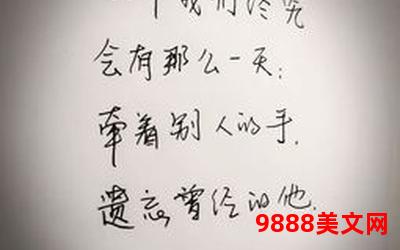 我们终究
会有那么一天：
牵着别人的手.
遗忘曾经的他.
9888美文网